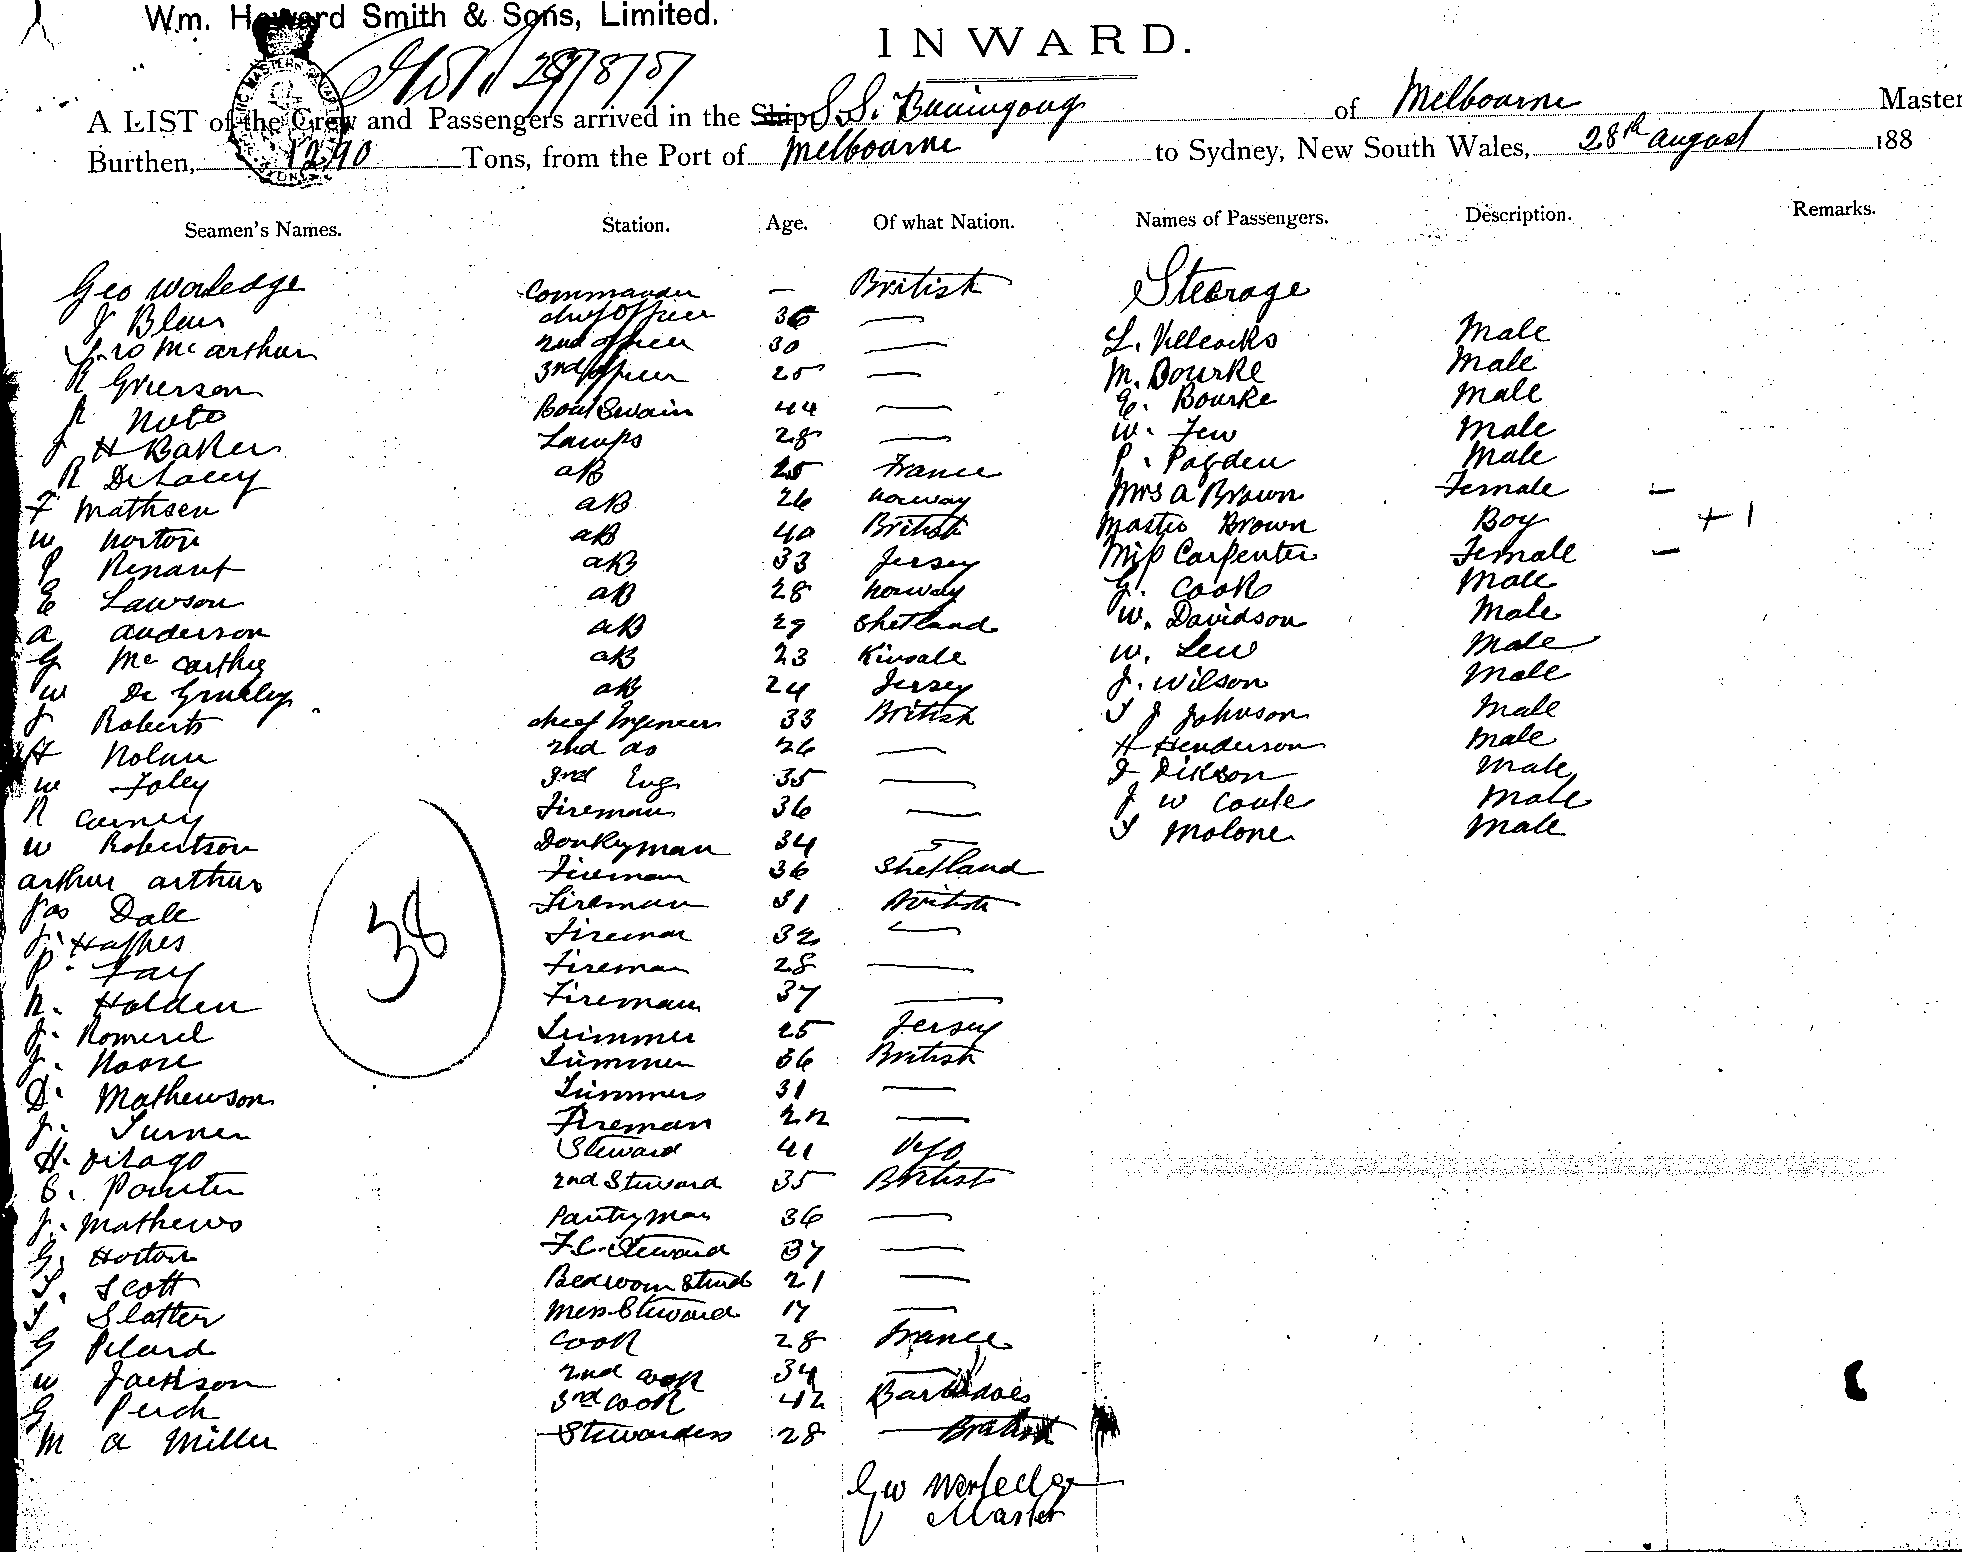 Wm. Howard Smith & Sons, Limited.
INWARD.
A LIST of the Crew and Passengers arrived in the Ship S.S. Buningong of Melbourne Master
Burthen, 1290 Tons, from the Port of Melbourne to Sydney, New South Wales, 28th august 188
Seamen's Names. Station. Age. Of what Nation. Names of Passengers. Description. Remarks.
Geo Worledge Commander — British Steerage
J Blair chief Officer 36 —
Mc arthur 2nd officer 30 — L. Male
R Grierson 3rd officer 25 — M. Bourke Male
Boatswain 44 — E. Bourke Male
J H Baker Lamps 28 — W. Few Male
R De Lacey aB 25 France P. Pagden Male
F Mathsen aB 26 norway Mrs a Brown Female —
W Norton aB 40 British Master Brown Boy + 1
P Renaut aB 33 Jersey Miss Carpenter Female —
E Lawson aB 28 norway G. Cook Male
a anderson aB 29 Shetland W. Davidson Male
G Mc Carthy aB 23 Kinsale W. Lew Male
W De aB 24 Jersey J. Wilson Male
J Roberts chief Ingeneer 33 British T J Johnson Male
H Nolan 2nd do 26 — H Henderson Male
W Foley 3rd Eng 35 — J Dikson Male
R Carney Fireman 36 — J W Coule Male
W Robertson Donkyman 34 — T Molone Male
arthur arthur Fireman 36 Shetland
Jas Dale Fireman 31 British
J. Hughes Fireman 32 —
P. Fay Fireman 28 —
38
R. Holden Fireman 37 —
J. Romeril Trimmer 25 Jersey
J. Moore Trimmer 36 British
D. Mathewson Trimmers 31 —
J. Turner Fireman 22 —
H. Steward 41
S. Pointer 2nd Steward 35 British
J. Mathews Pantryman 36 —
G. Horton F.C. Steward 37 —
T. Scott Bedroom Stwd 21 —
T Slatter Mess Steward 17 —
G Pilard Cook 28 France
W Jackson 2nd cook 34 —
G Perch 3rd cook 42 Barbadoes
M a Miller Stewardess 28 — British
Geo Worledge
Master